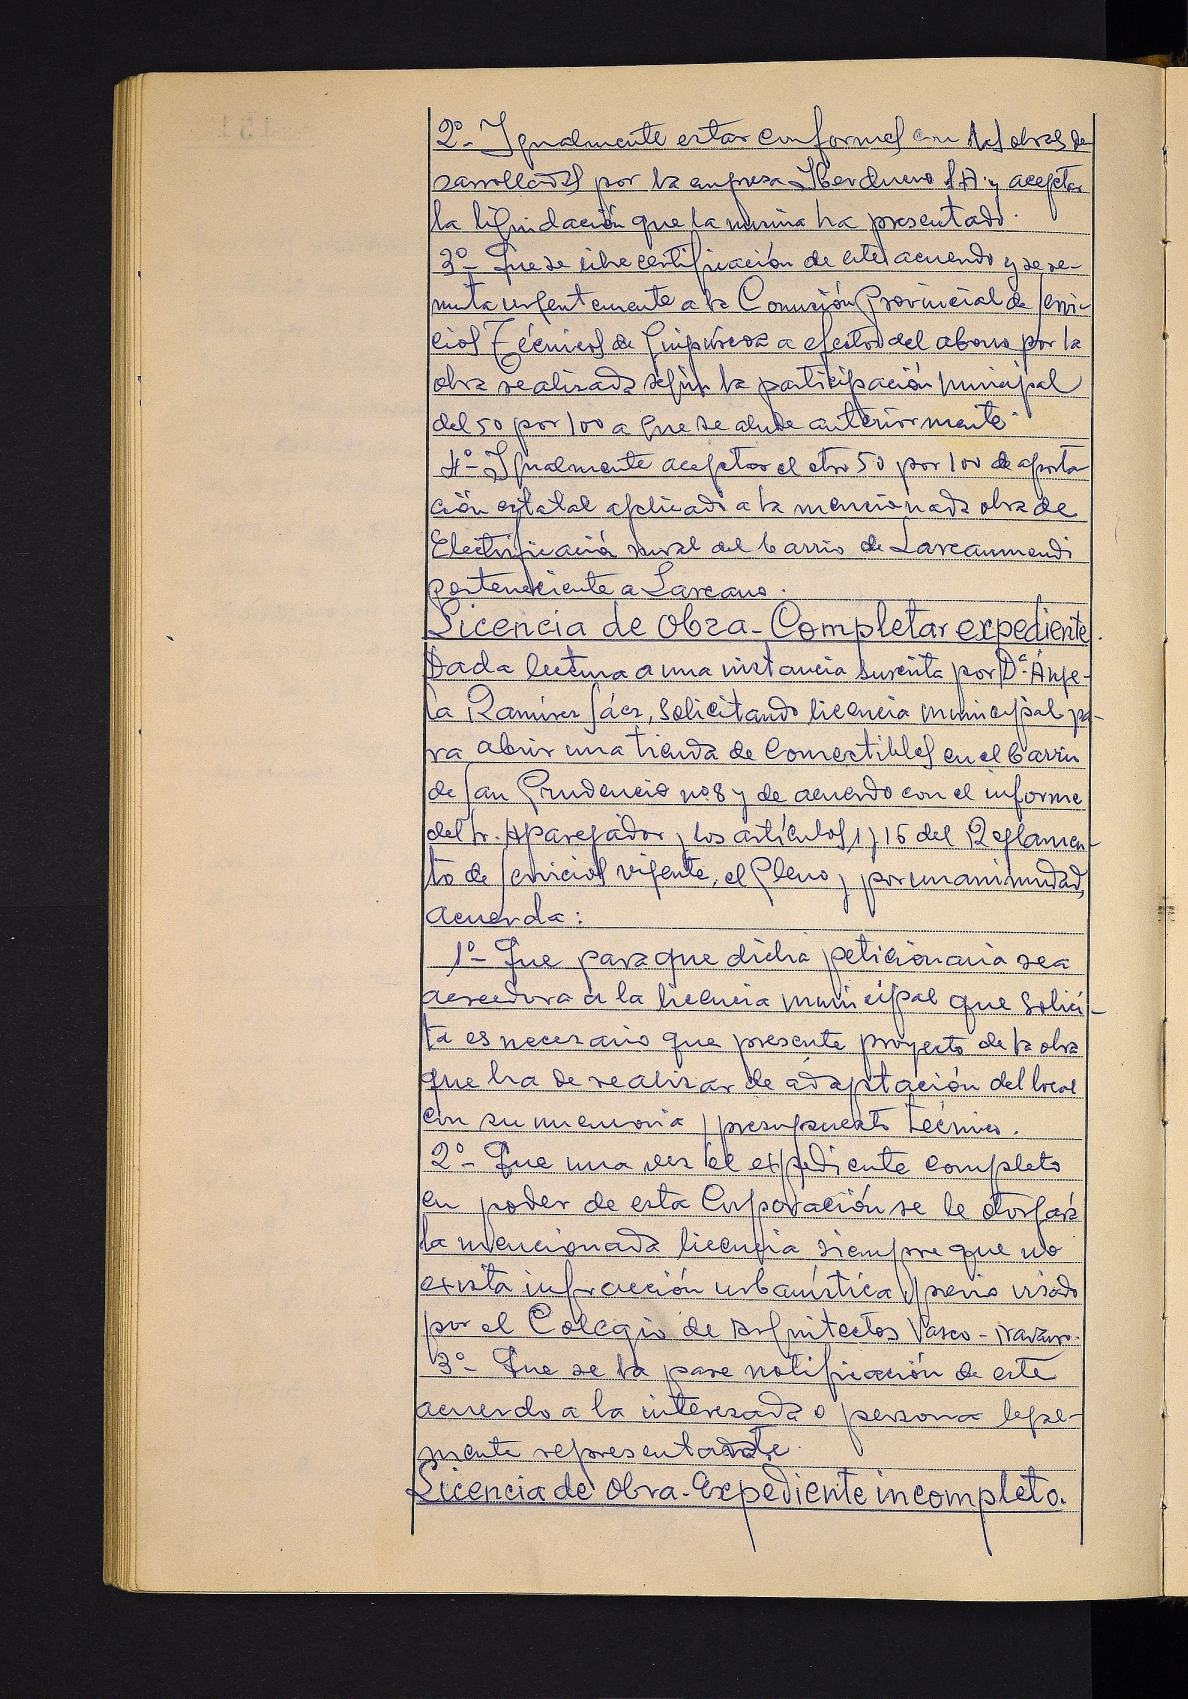 2º- Igualmente estar conformes con las obras de
sarrolladas por la empresa Iberduero S.A. y aceptar
la liquidación que la misma ha presentado.
3º- Que se libre certificación de este acuerdo y se re-
mita urgentemente a la Comisión Provincial de Servi-
cios Técnicos de Guipúzcoa a efectos del abono por la
obra realizada según la participación municipal
del 50 por 100 a que se alude anteriormente.
4º- Igualmente aceptar el otro 50 por 100 de aporta
ción estatal aplicado a la mencionada obra de
Electrificación rural del barrio de Lazcaumendi
perteneciente a Lazcano.
Licencia de Obra- Completar expediente.
Dada lectura a una instancia suscrita por Dª. Ánge-
la Ramírez Sáez, solicitando licencia municipal pa-
ra abrir una tienda de Comestibles en el barrio
de San Prudencio nº8 y de acuerdo con el informe
del Sr. Aparejador y los artículos 1 y 16 del Reglamen-
to de Servicios vigente, el Pleno y por unanimidad,
acuerda:
1º- Que para que dicha peticionaria sea
acreedora a la licencia municipal que solici-
ta es necesario que presente proyecto de la obra
que ha de realizar de adaptación del local
con su memoria y presupuesto técnico.
2º- Que una vez el expediente completo
en poder de esta Corporación se le otorgará
la mencionada licencia siempre que no
exista infracción urbanística y previo visado
por el Colegio de Arquitectos Vasco-Navarro.
3º- Que se la pase notificación de este
acuerdo a la interesada o persona legal-
mente representante.
Licencia de Obra-Expediente incompleto.